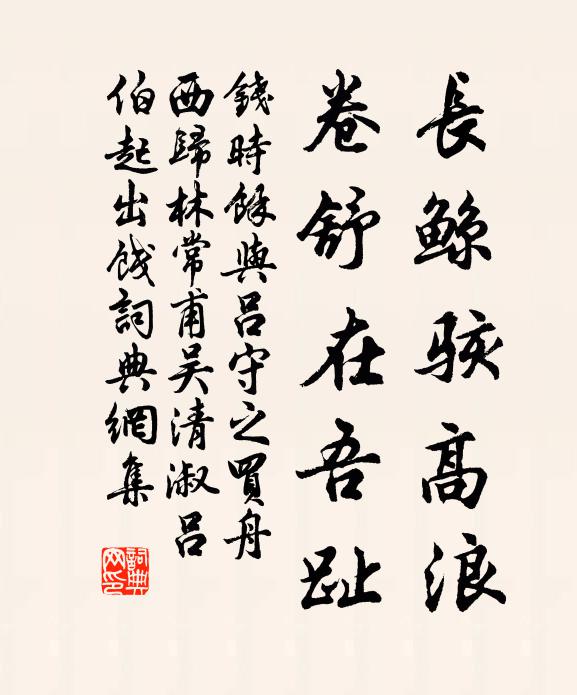 長鲸駭高浪
卷舒在吾趾
錢時餘與呂守之買舟
西歸林常甫吴清淑呂
伯起出餞詞典網集
詞典网印